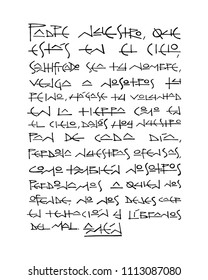 PADRE NUESTRO, QUE
ESTAS EN EL CIELO,
SANTIFICADO SEA TU NOMBRE,
VENGA A NOSOTROS TU
REINO, HAGASE TU VOLUNTAD
EN LA TIERRA COMO EN
EL CIELO, DANOS HOY NUESTRO
PAN DE CADA DIA,
PERDONA NUESTRAS OFENSAS,
COMO TAMBIEN NOSOTROS
PERDONAMOS A QUIEN NOS
OFENDE NO NOS DEJES CAER
EN TENTACION Y LIBRANOS
DEL MAL. AMEN
shutterstock.com • 1113087080